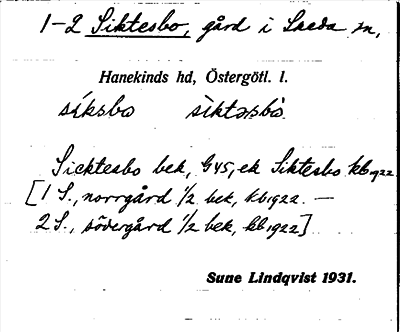 1-2 Siktesbo, gård i Skeda sn,
Hanekinds hd, Östergötl. l.
síksbo   sìktəsbò.
Sicktesbo bek, G45, ek Siktesbo kb1922
[1 S., norrgård 1/2 bek, kb1922. —
2 S., södergård 1/2 bek, kb1922]
Sune Lindqvist 1931.